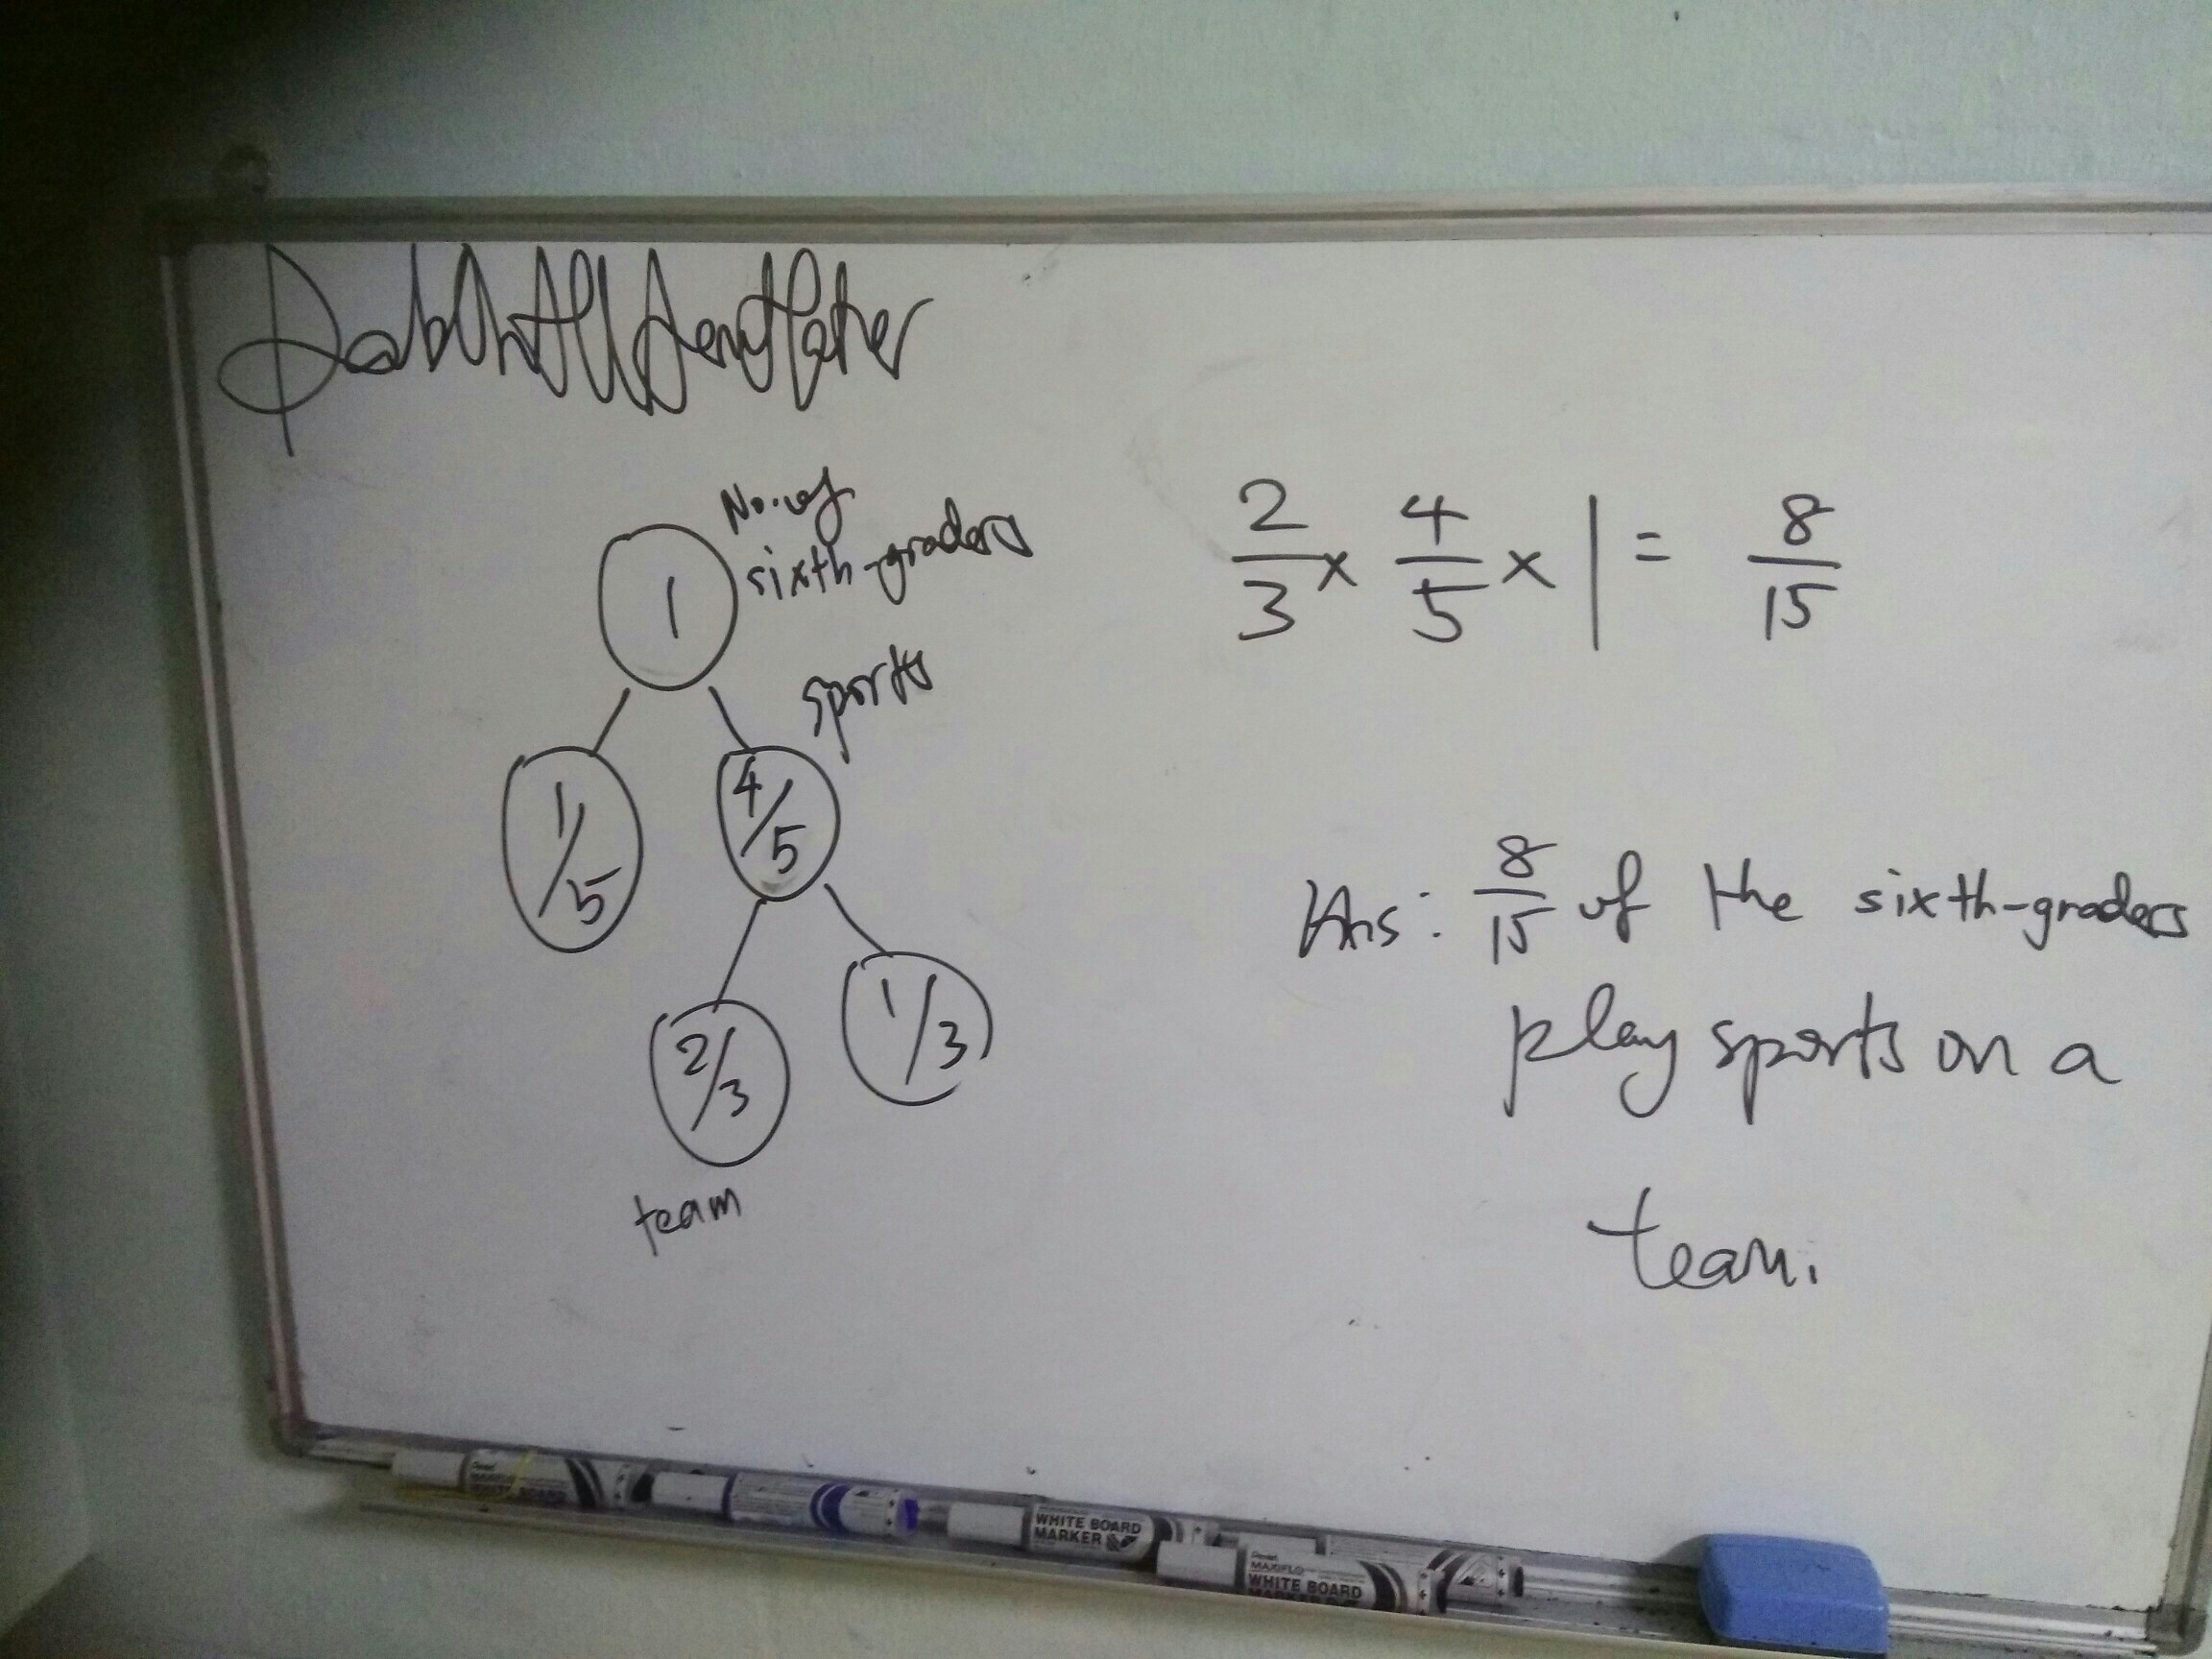 No. of
sixth-graders
1
sports
1/5
4/5
2/3
1/3
team
2/3 × 4/5 × 1 = 8/15
Ans: 8/15 of the sixth-graders
play sports on a
team.
WHITE BOARD
MARKER
Pentel
MAXIFLO
WHITE BOARD